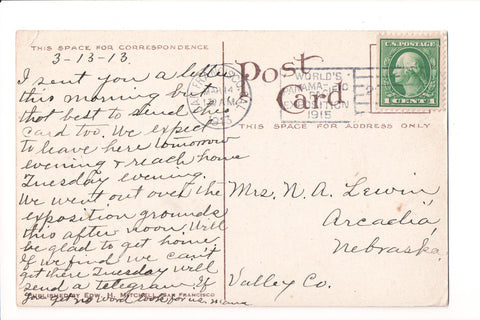 THIS SPACE FOR CORRESPONDENCE
3-13-13.
I sent you a letter
this morning but
that best to send the
card too. We expect
to leave here tomorrow
evening & reach home
Tuesday evening.
We went out over the
exposition grounds
this after noon. Will
be glad to get home.
If we find we can't
get there Tuesday will
send a telegram. If
you get no word look for us. mama
PUBLISHED BY EDW. H. MITCHELL, SAN FRANCISCO
Post
Card
WORLD'S
PANAMA-PACIFIC
EXPOSITION
1915
U.S. POSTAGE
1 CENT 1
THIS SPACE FOR ADDRESS ONLY
Mrs. N. A. Lewin,
Arcadia,
Nebraska.
Valley Co.